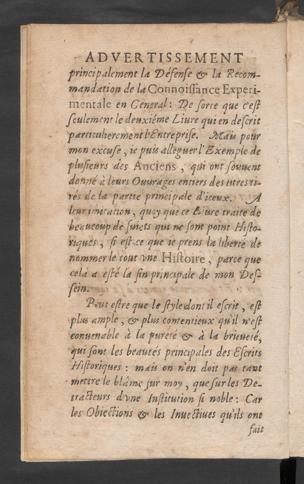 ADVERTISSEMENT
principalement la Défense & la Recom-
mandation de la Connoissance Experi-
mentale en General: De sorte que c'est
seulement le deuxiéme Liure qui en descrit
particulierement l'Entreprise. Mais pour
mon excuse, ie puis alleguer l'Exemple de
plusieurs des Anciens, qui ont souuent
donné à leurs Ouurages entiers des titres ti-
rés de la partie principale d'iceux. A
leur imitation, quoy que ce Liure traite de
beaucoup de suiets qui ne sont point Histo-
riques, si est-ce que ie prens la liberté de
nommer le tout vne Histoire, parce que
cela a esté la fin principale de mon Des-
sein.
Peut estre que le style dont il escrit, est
plus ample, & plus contentieux qu'il n'est
conuenable à la pureté & à la brieueté,
qui sont les beautés principales des Escrits
Historiques: mais on n'en doit pas tant
mettre le blâme sur moy, que sur les De-
tracteurs d'vne Institution si noble: Car
les Obiections & les Inuectiues qu'ils ont
fait